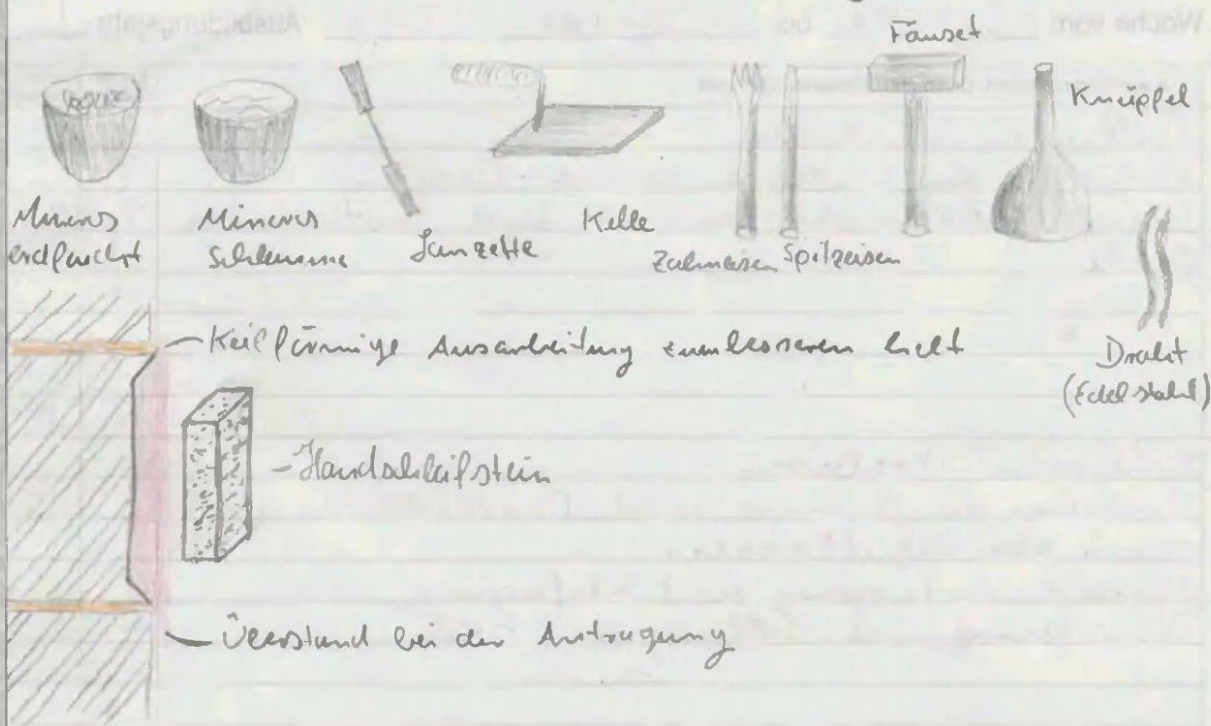 Fäustel
Knüpfel
Mineros
erdfeucht
Mineros
Schlemme
Lanzette
Kelle
Zahneisen
Spitzeisen
Draht
(Edelstahl)
Keilförmige Ausarbeitung zum besseren halt
Handschleifstein
Überstand bei der Antragung